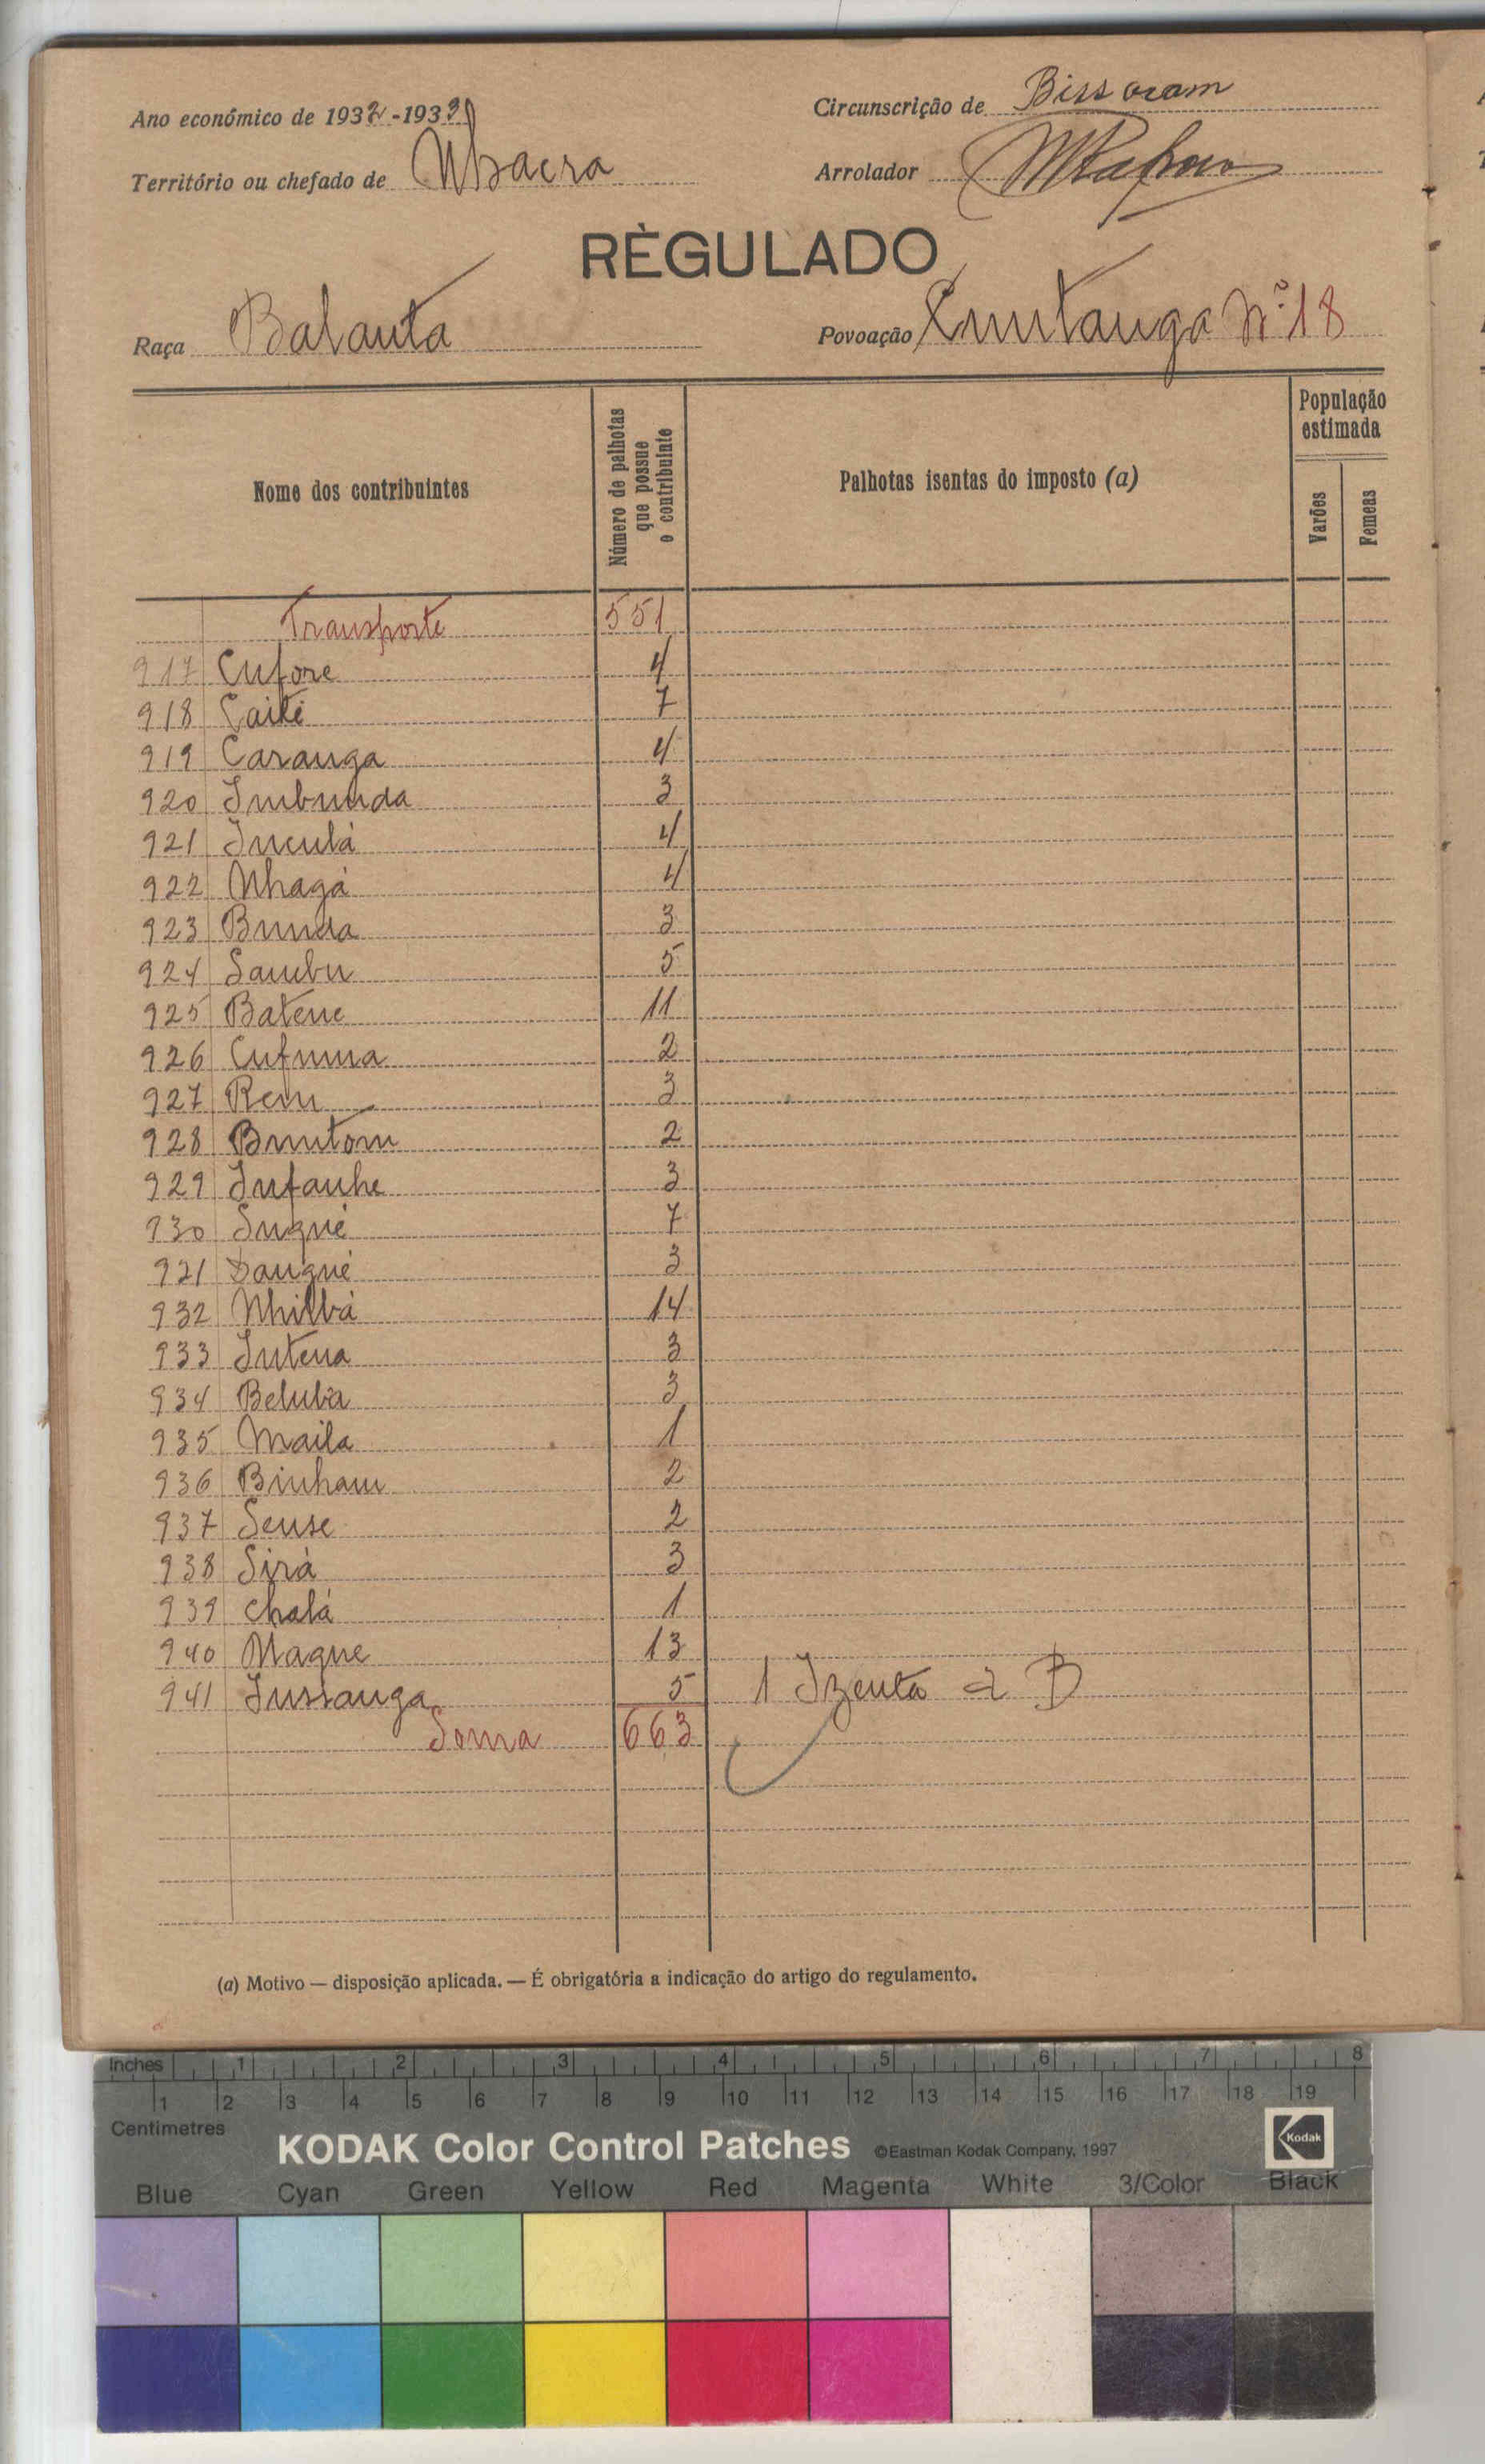 Ano económico de 1932-1933
Circunscrição de Bissoram
Território ou chefado de Nhacra
Arrolador
RÈGULADO
Raça Balanta
Povoação Cuntanga Nº 18
Nome dos contribuintes
Número de palhotas que possue o contribuinte
Palhotas isentas do imposto (a)
População estimada
Varões
Femeas
Transporte 551
917 Cufore 4
918 Caité 7
919 Caranga 4
920 Imbunda 3
921 Inculá 4
922 Nhagá 4
923 Bunda 3
924 Sambu 5
925 Batene 11
926 Cufuma 2
927 Rem 3
928 Buntom 2
929 Infanhe 3
930 Sugué 7
921 Dangué 3
932 Nhilbá 14
933 Intena 3
934 Beluba 3
935 Maila 1
936 Binham 2
937 Sense 2
938 Sirá 3
939 Chalá 1
940 Naque 13
941 Inssanga 5 1 Izenta a D
Soma 663
(a) Motivo — disposição aplicada. — É obrigatória a indicação do artigo do regulamento.
Inches 1 2 3 4 5 6 7 8
1 2 3 4 5 6 7 8 9 10 11 12 13 14 15 16 17 18 19
Centimetres
KODAK Color Control Patches ©Eastman Kodak Company, 1997 Kodak
Blue Cyan Green Yellow Red Magenta White 3/Color Black